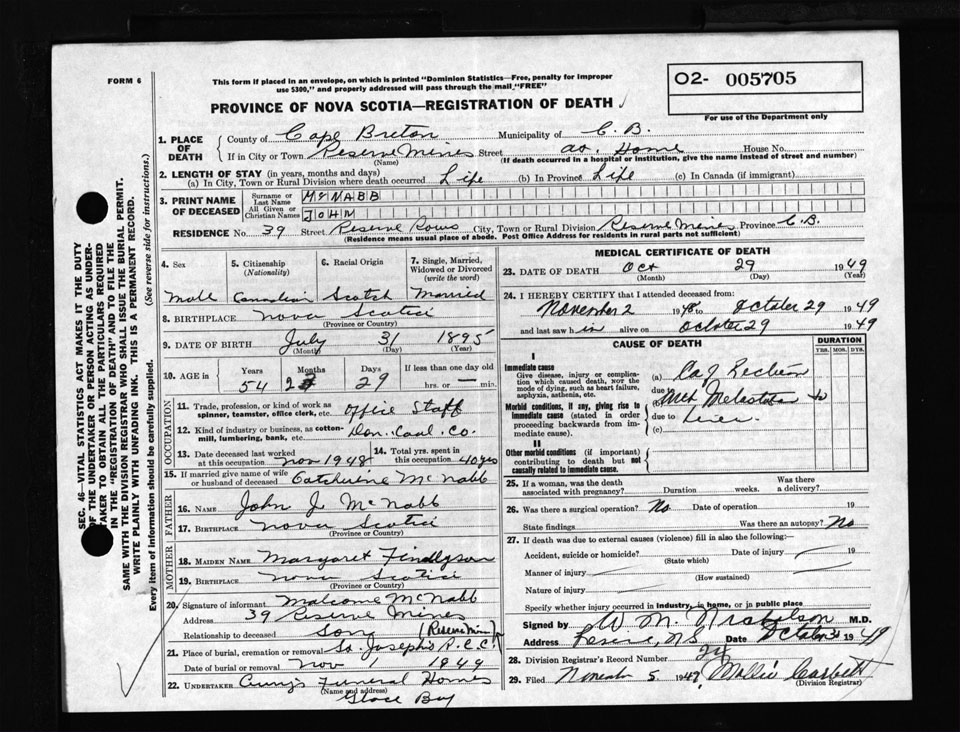 FORM 6
This form if placed in an envelope, on which is printed "Dominion Statistics—Free, penalty for improper
use $300," and properly addressed will pass through the mail "FREE"
O2- 005705
For use of the Department only
PROVINCE OF NOVA SCOTIA—REGISTRATION OF DEATH
SEC. 46—VITAL STATISTICS ACT MAKES IT THE DUTY
OF THE UNDERTAKER OR PERSON ACTING AS UNDER-
TAKER TO OBTAIN ALL THE PARTICULARS REQUIRED
IN THE "REGISTRATION OF DEATH" AND TO FILE THE
SAME WITH THE DIVISION REGISTRAR WHO SHALL ISSUE THE BURIAL PERMIT.
WRITE PLAINLY WITH UNFADING INK. THIS IS A PERMANENT RECORD.
Every item of information should be carefully supplied. (See reverse side for instructions.)
1. PLACE OF DEATH County of Cape Breton Municipality of C.B.
If in City or Town Reserve Mines Street at Home House No.
(Name) (If death occurred in a hospital or institution, give the name instead of street and number)
2. LENGTH OF STAY (in years, months and days)
(a) In City, Town or Rural Division where death occurred Life (b) In Province Life (c) In Canada (if immigrant)
3. PRINT NAME OF DECEASED Surname or Last Name McNABB
All Given or Christian Names JOHN
RESIDENCE No. 39 Street Reserve Rows City, Town or Rural Division Reserve Mines Province C.B.
(Residence means usual place of abode. Post Office Address for residents in rural parts not sufficient)
4. Sex 5. Citizenship (Nationality) 6. Racial Origin 7. Single, Married, Widowed or Divorced (write the word)
Male Canadian Scotch Married
8. BIRTHPLACE Nova Scotia
(Province or Country)
9. DATE OF BIRTH July 31 1895
(Month) (Day) (Year)
10. AGE in Years Months Days If less than one day old
54 2 29 hrs. or — min.
OCCUPATION
11. Trade, profession, or kind of work as spinner, teamster, office clerk, etc. Office Staff
12. Kind of industry or business, as cotton-mill, lumbering, bank, etc. Dom. Coal. Co.
13. Date deceased last worked at this occupation Nov 1948 14. Total yrs. spent in this occupation 40 yrs
15. If married give name of wife or husband of deceased Catherine McNabb
FATHER
16. Name John J McNabb
17. Birthplace Nova Scotia
(Province or Country)
MOTHER
18. Maiden Name Margaret Findlyson
19. Birthplace Nova Scotia
(Province or Country)
20. Signature of informant Malcome McNabb
Address 39 Reserve Mines
Relationship to deceased Son (Reserve Mines)
21. Place of burial, cremation or removal St. Joseph's R.C.C.
Date of burial or removal Nov 1 1949
22. UNDERTAKER Curry's Funeral Homes
(Name and address)
Glace Bay
MEDICAL CERTIFICATE OF DEATH
23. DATE OF DEATH Oct 29 1949
(Month) (Day) (Year)
24. I HEREBY CERTIFY that I attended deceased from:
November 2 1948 to October 29 1949
and last saw him alive on October 29 1949
CAUSE OF DEATH DURATION
YRS. MOS. DYS.
I
Immediate cause
Give disease, injury or complication which caused death, NOT the mode of dying, such as heart failure, asphyxia, asthenia, etc.
(a) Ca of Rectum
due to
(b) with Metastases to
Morbid conditions, if any, giving rise to immediate cause (stated in order proceeding backwards from immediate cause).
due to Liver
(c)
II
Other morbid conditions (if important) contributing to death but not causally related to immediate cause.
25. If a woman, was the death associated with pregnancy? Duration weeks. Was there a delivery?
26. Was there a surgical operation? No Date of operation 19
State findings Was there an autopsy? No
27. If death was due to external causes (violence) fill in also the following:—
Accident, suicide or homicide? Date of injury 19
(State which)
Manner of injury
(How sustained)
Nature of injury
Specify whether injury occurred in industry, in home, or in public place
Signed by W M. Nicholson M.D.
Address Reserve, N.S. Date October 31 1949
28. Division Registrar's Record Number 24
29. Filed November 5, 1949, Mollie Corbett
(Division Registrar)